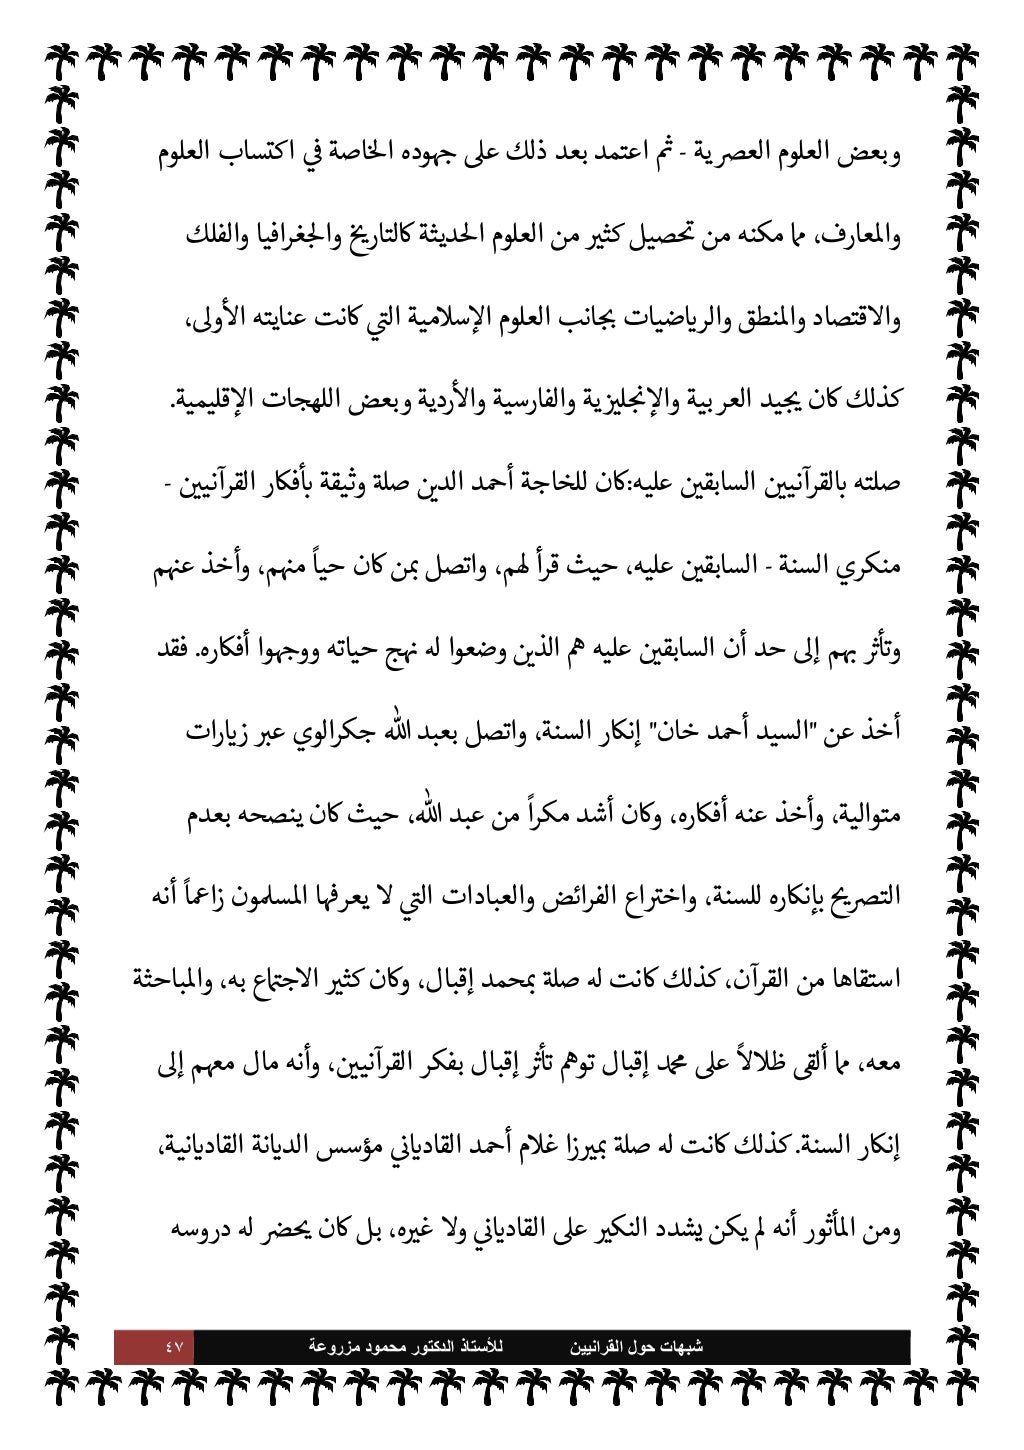 وبعض العلوم العصرية - ثم اعتمد بعد ذلك على جهوده الخاصة في اكتساب العلوم
والمعارف، مما مكنه من تحصيل كثير من العلوم الحديثة كالتاريخ والجغرافيا والفلك
والاقتصاد والمنطق والرياضيات بجانب العلوم الإسلامية التي كانت عنايته الأولى،
كذلك كان يجيد العربية والإنجليزية والفارسية والأردية وبعض اللهجات الإقليمية.
صلته بالقرآنيين السابقين عليه:كان للخاجة أحمد الدين صلة وثيقة بأفكار القرآنيين -
منكري السنة - السابقين عليه، حيث قرأ لهم، واتصل بمن كان حياً منهم، وأخذ عنهم
وتأثر بهم إلى حد أن السابقين عليه هم الذين وضعوا له نهج حياته ووجهوا أفكاره. فقد
أخذ عن "السيد أحمد خان" إنكار السنة، واتصل بعبد الله جكرالوي عبر زيارات
متوالية، وأخذ عنه أفكاره، وكان أشد مكراً من عبد الله، حيث كان ينصحه بعدم
التصريح بإنكاره للسنة، واختراع الفرائض والعبادات التي لا يعرفها المسلمون زاعماً أنه
استقاها من القرآن، كذلك كانت له صلة بمحمد إقبال، وكان كثير الاجتماع به، والمباحثة
معه، مما ألقى ظلالاً على محمد إقبال توهم تأثر إقبال بفكر القرآنيين، وأنه مال معهم إلى
إنكار السنة. كذلك كانت له صلة بميرزا غلام أحمد القادياني مؤسس الديانة القاديانية،
ومن المأثور أنه لم يكن يشدد النكير على القادياني ولا غيره، بل كان يحضر له دروسه
شبهات حول القرانيين للأستاذ الدكتور محمود مزروعة ٤٧